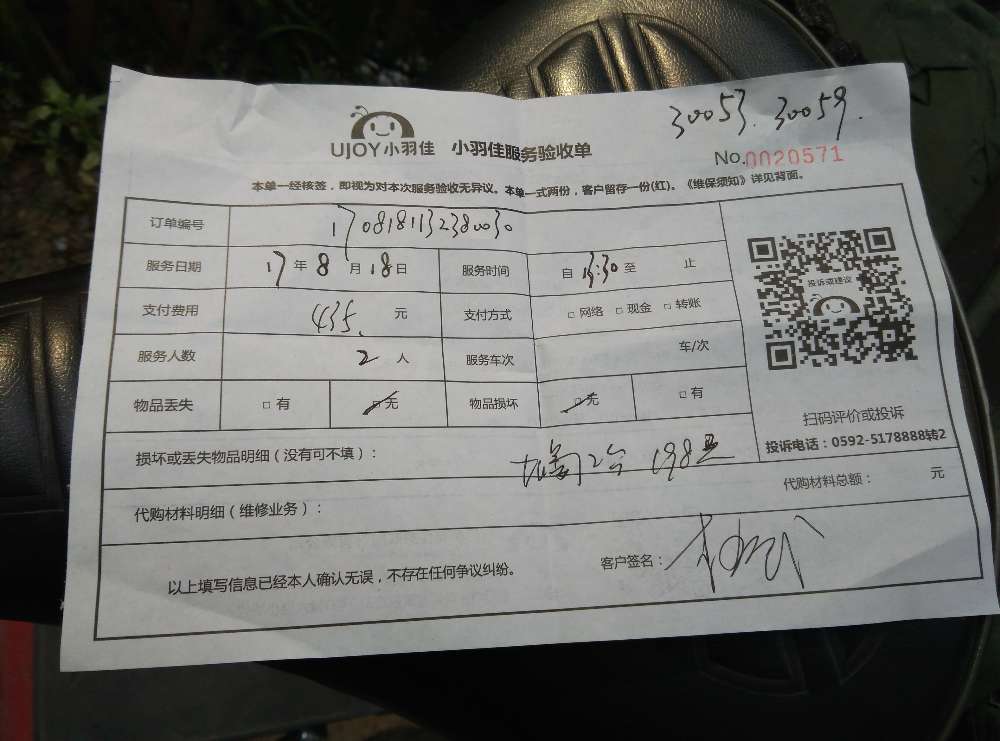 30053. 30059.
UJOY小羽佳 小羽佳服务验收单
No.0020571
本单一经核签，即视为对本次服务验收无异议。本单一式两份，客户留存一份(红)。《维保须知》详见背面。
订单编号 1708181132380030
服务日期 17年8月18日 服务时间 自13:30至 止
支付费用 435. 元 支付方式 □网络 □现金 □转账
服务人数 2人 服务车次 车/次
物品丢失 □有 □无 物品损坏 □无 □有
投诉或建议
扫码评价或投诉
投诉电话：0592-5178888转2
损坏或丢失物品明细（没有可不填）：
2台 198
代购材料明细（维修业务）： 代购材料总额： 元
以上填写信息已经本人确认无误，不存在任何争议纠纷。 客户签名：